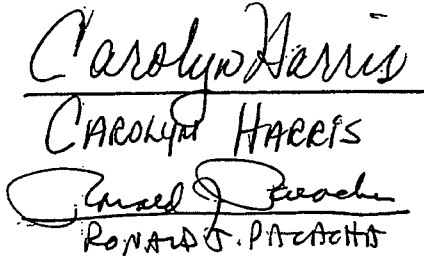 Carolyn Harris
CAROLYN HARRIS
Ronald J. Pacacha
RONALD J. PACACHA